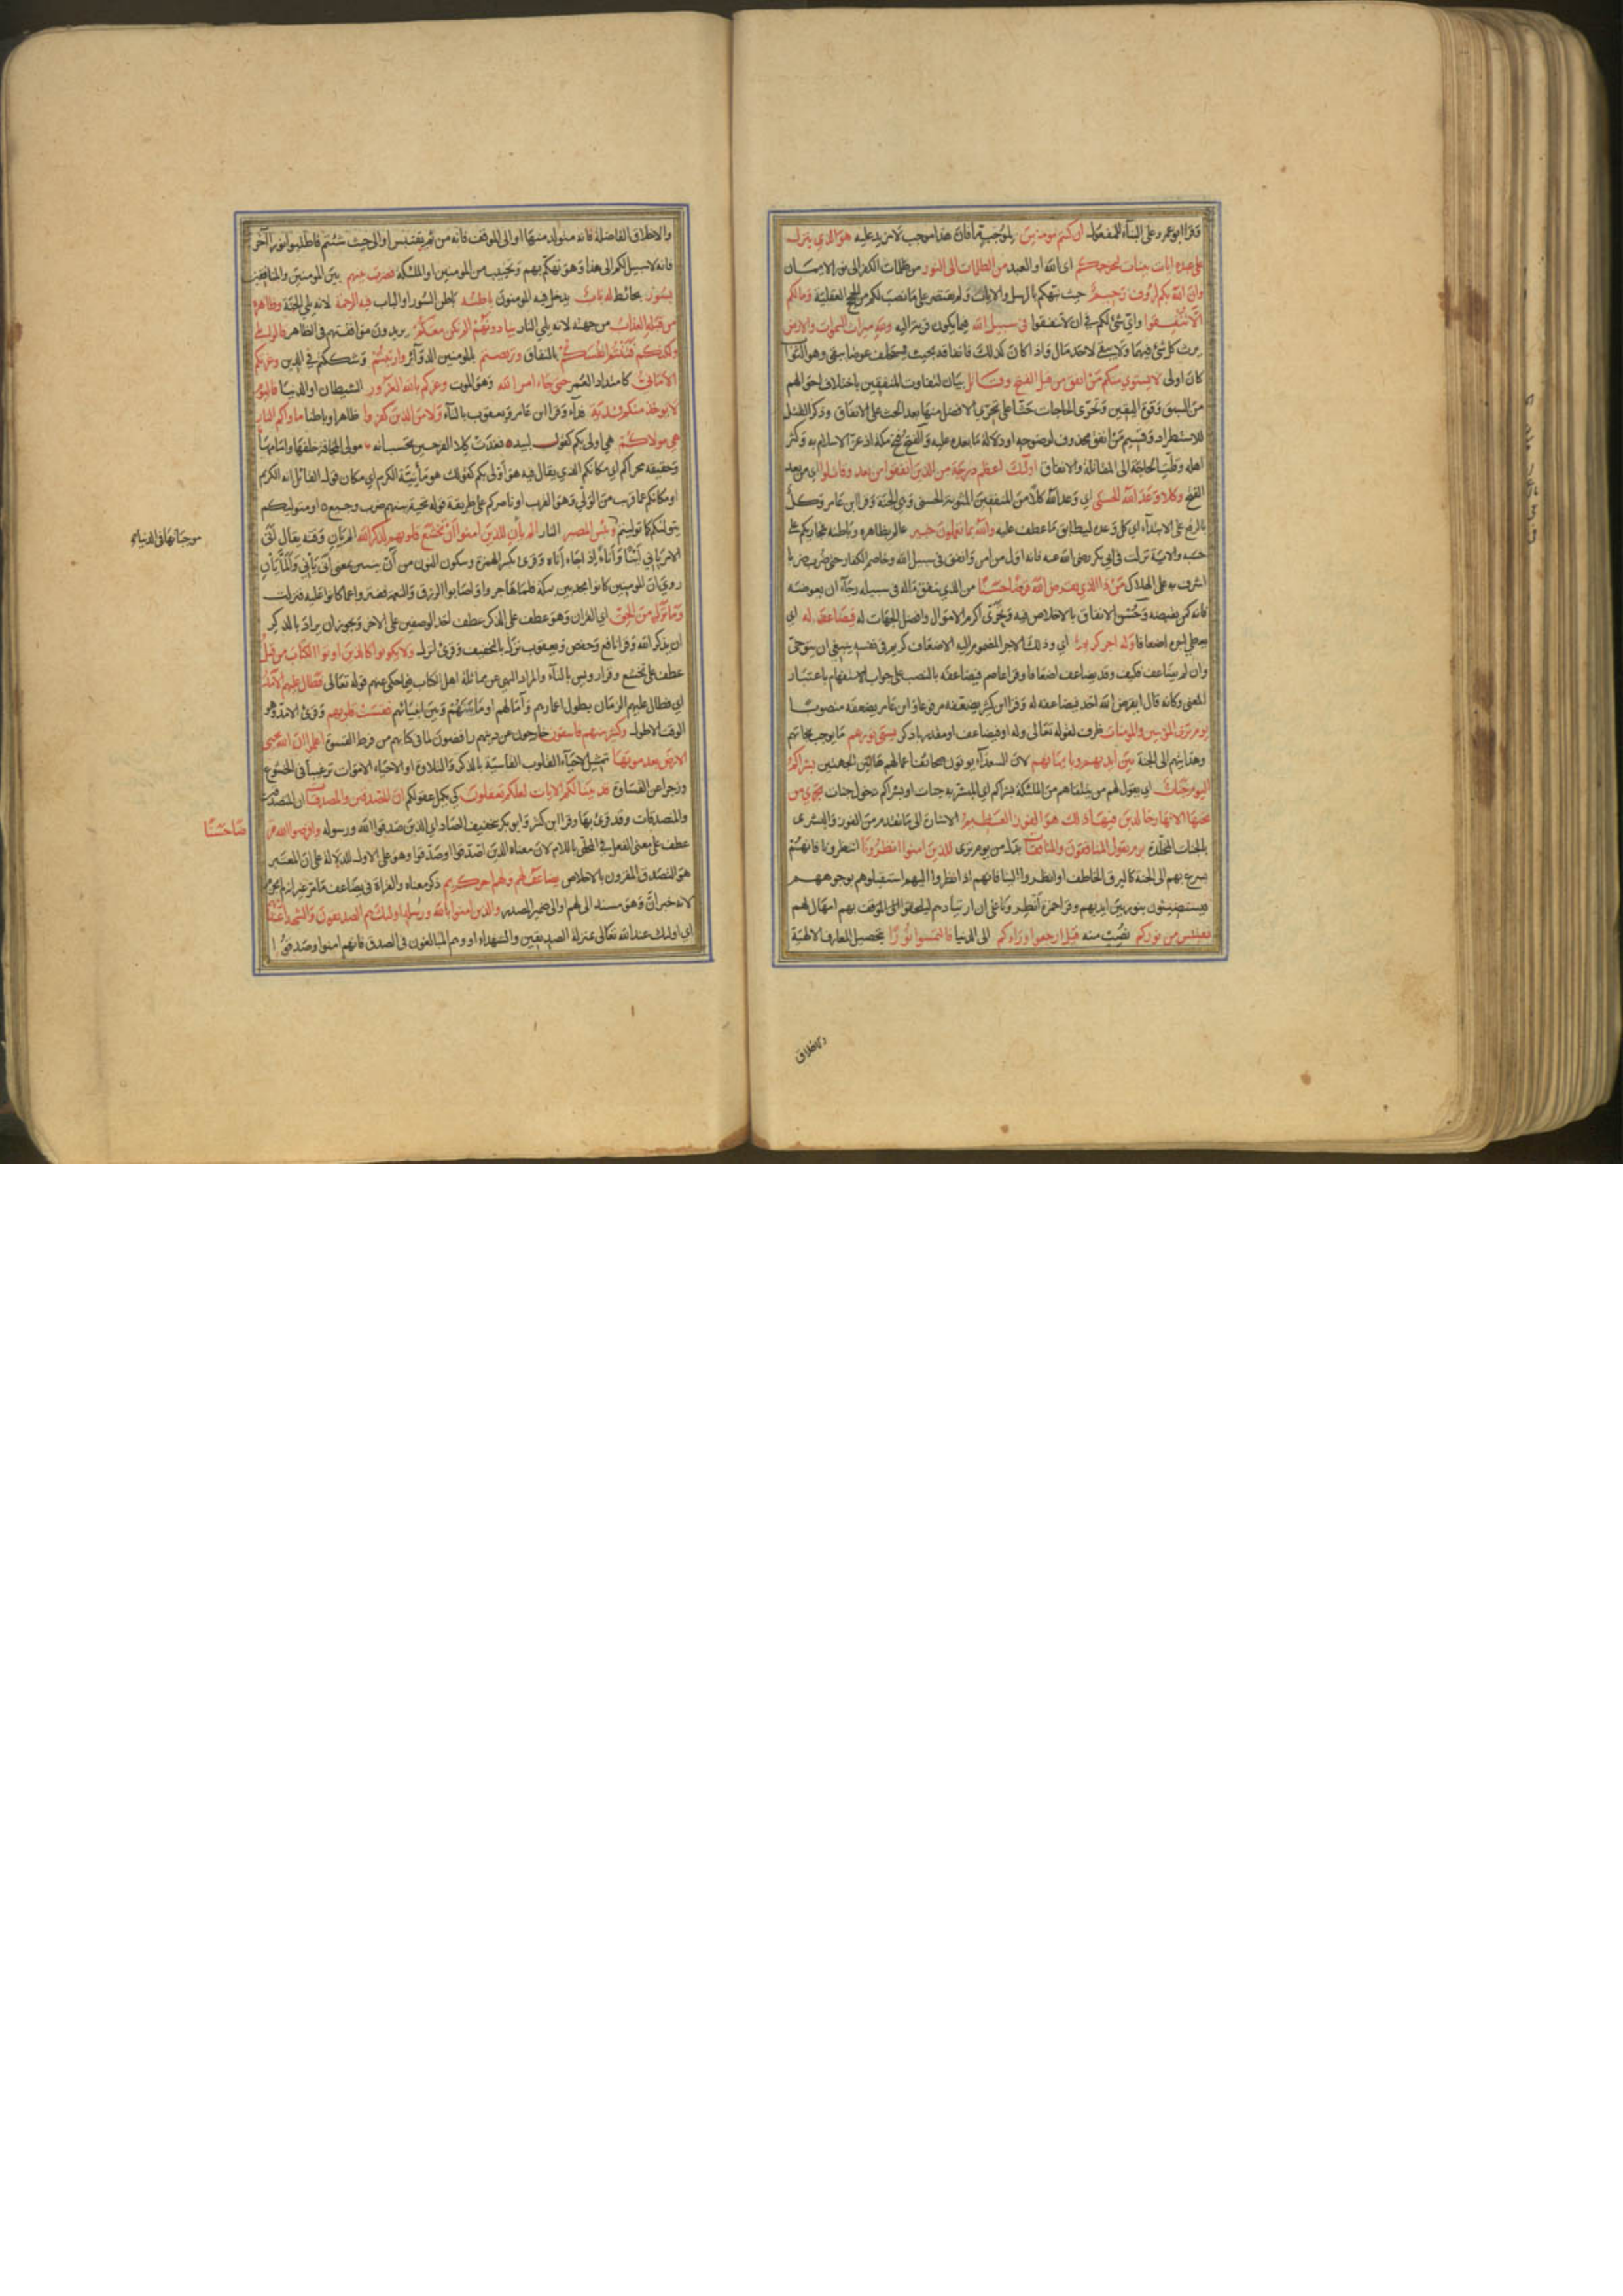 وقرا ابو عمرو على البناء للمفعول ان كنتم مومنين لموجب ما فان هذا موجب لا مزيد عليه هو الذي ينزل
على عبده ايات بينات ليخرجكم اى الله او العبد من الظلمات الى النور من ظلمات الكفر الى نور الايمان
وان الله بكم لرؤف رحيم حيث نبهكم بالرسل والايات ولم يقتصر على ما نصب لكم من الحجج العقلية وما لكم
الا تنفقوا واي شئ لكم في ان لا تنفقوا في سبيل الله فيما يكون قربة اليه ولله ميراث السموات والارض
يرث كل شئ فيهما ولا يبقى لاحد مال واذا كان كذلك فانفاقه بحيث يستخلف عوضا يبقى وهو الثواب
كان اولى لا يستوي منكم من انفق من قبل الفتح وقاتل بيان لتفاوت المنفقين باختلاف احوالهم
من السبق وقوة اليقين وتحرى الحاجات حثا على تحري الافضل منها بعد الحث على الانفاق وذكر القتال
للاستطراد وقسيم من انفق محذوف لوضوحه او دلالة ما بعده عليه والفتح فتح مكة اذ عز الاسلام به وكثر
اهله وقلت الحاجة الى المقاتلة والانفاق اولئك اعظم درجة من الذين انفقوا من بعد وقاتلوا اي من بعد
الفتح وكلا وعد الله الحسنى اي وعد الله كلا من المنفقين المثوبة الحسنى وهي الجنة وقرا ابن عامر وكل
بالرفع على الابتداء اي كل وعده ليطابق ما عطف عليه والله بما تعملون خبير عالم بظاهره وباطنه فمجازيكم على
حسبه والاية نزلت في ابي بكر رضى الله عنه فانه اول من امن وانفق في سبيل الله وخاصم الكفار حتى ضرب ضربا
اشرف به على الهلاك من ذا الذي يقرض الله قرضا حسنا من الذي ينفق ماله في سبيله رجاء ان يعوضه
فانه كمن يقرضه وحسن الانفاق بالاخلاص فيه وتحرى اكرم الاموال وافضل الجهات له فيضاعفه له اي
يعطي اجره اضعافا وله اجر كريم اي وذلك الاجر المضموم اليه الاضعاف كريم في نفسه ينبغي ان يتوخى
وان لم يضاعف فكيف وقد يضاعف اضعافا وقرا عاصم فيضاعفه بالنصب على جواب الاستفهام باعتبار
المعنى وكانه قال ايقرض الله احد فيضاعفه له وقرا ابن كثير يضعفه مرفوعا وابن عامر يضعفه منصوبا
يوم ترى المؤمنين والمومنات ظرف لقوله تعالى وله او فيضاعف او مقدر باذكر يسعى نورهم ما يوجب نجاتهم
وهدايتهم الى الجنة بين ايديهم وبايمانهم لان السعداء يوتون صحائف اعمالهم من هاتين الجهتين بشراكم
اليوم جنات اي يقول لهم من يتلقاهم من الملئكة بشراكم اي المبشر به جنات او بشراكم دخول جنات تجري من
تحتها الانهار خالدين فيها ذلك هو الفوز العظيم الاشارة الى ما تقدم من الفوز والبشرى
بالجنات المخلدة يوم يقول المنافقون والمنافقات بدل من يوم ترى للذين امنوا انظرونا انتظرونا فانهم
يسرع بهم الى الجنة كالبرق الخاطف او انظروا الينا فانهم اذا نظروا اليهم استقبلوهم بوجوههم
فيستضيئون بنور بين ايديهم وقرا حمزة انظرونا على ان اتئادهم ليلحقوا بهم امهال لهم
نقتبس من نوركم نصب منه قيل ارجعوا وراءكم الى الدنيا فالتمسوا نورا بتحصيل المعارف الالهية
والاخلاق
والاخلاق الفاضلة فانه متولد منها او الى الموقف فانه من ثم يقتبس او الى حيث شئتم فاطلبوا نورا اخر
فانه لا سبيل لكم الى هذا وهو تهكم بهم وتخييب من المومنين او الملئكة فضرب بينهم بين المومنين والمنافقين
بسور بحائط له باب يدخل فيه المومنون باطنه باطن السور او الباب فيه الرحمة لانه يلي الجنة وظاهره
من قبله العذاب من جهته لانه يلي النار ينادونهم الم نكن معكم يريدون موافقتهم في الظاهر قالوا بلى
ولكنكم فتنتم انفسكم بالنفاق وتربصتم بالمومنين الدوائر وارتبتم وشككتم في الدين وغرتكم
الاماني كامتداد العمر حتى جاء امر الله وهو الموت وغركم بالله الغرور الشيطان او الدنيا فاليوم
لا يوخذ منكم فدية فداء وقرا ابن عامر ويعقوب بالتاء ولا من الذين كفروا ظاهرا وباطنا ماواكم النار
هي مولاكم هي اولى بكم كقول لبيد فغدت كلا الفرجين تحسب انه مولى المخافة خلفها وامامها
وحقيقته محراكم اي مكانكم الذي يقال فيه هو اولى بكم كقولك هو مئنة الكرم اي مكان قول القائل انه الكريم
او مكانكم عما قريب من الولي وهو القرب او ناصركم على طريقة قوله تحية بينهم ضرب وجيع او متوليكم
يتولاكم كما توليتم وبئس المصير النار الم يان للذين امنوا ان تخشع قلوبهم لذكر الله الم يات وقته يقال انى
موجباتها في الدنيا
الامر ياني انيا واناء اذا جاء اناه وقرئ بكسر الهمزة وسكون النون من آن يئين بمعنى انى ياني والما يان
روي ان المومنين كانوا مجدبين بمكة فلما هاجروا واصابوا الرزق والنعمة ففتروا عما كانوا عليه فنزلت
وما نزل من الحق اي القران وهو عطف على الذكر عطف احد الوصفين على الاخر ويجوز ان يراد بالذكر
ان يذكر الله وقرا نافع وحفص ويعقوب نزل بالتخفيف وقرئ انزل ولا يكونوا كالذين اوتوا الكتاب من قبل
عطف على تخشع وقرا رويس بالتاء والمراد النهي عن مماثلة اهل الكتاب فيما حكى عنهم قوله تعالى فطال عليهم الامد
اي فطال عليهم الزمان بطول اعمارهم وآمالهم او ما بينهم وبين انبيائهم فقست قلوبهم وقرئ الامد وهو
الوقت الاطول وكثير منهم فاسقون خارجون عن دينهم رافضون لما في كتابهم من فرط القسوة اعلموا ان الله يحيى
الارض بعد موتها تمثيل لاحياء القلوب القاسية بالذكر والتلاوة او لاحياء الاموات ترغيبا في الخشوع
وزجرا عن القساوة قد بينا لكم الايات لعلكم تعقلون كي يكمل عقولكم ان المصدقين والمصدقات ان المتصدقين
والمتصدقات وقد قرئ بها وقرا ابن كثير وابو بكر بتخفيف الصاد اي الذين صدقوا الله ورسوله واقرضوا الله قر
ضا حسنا
عطف على معنى الفعل في المحلى باللام لان معناه الذين اصدقوا او صدقوا وهو على الاول للدلالة على ان المعتبر
هو التصدق المقرون بالاخلاص يضاعف لهم ولهم اجر كريم ذكر معناه والقراة في يضاعف ما مر غير انه لم يجزم
لانه خبر ان وهو مسند الى لهم او الى ضمير المصدر والذين امنوا بالله ورسله اولئك هم الصديقون والشهداء عند ربهم
اي اولئك عند الله تعالى بمنزلة الصديقين والشهداء او وهم المبالغون في الصدق فانهم امنوا وصدقوا